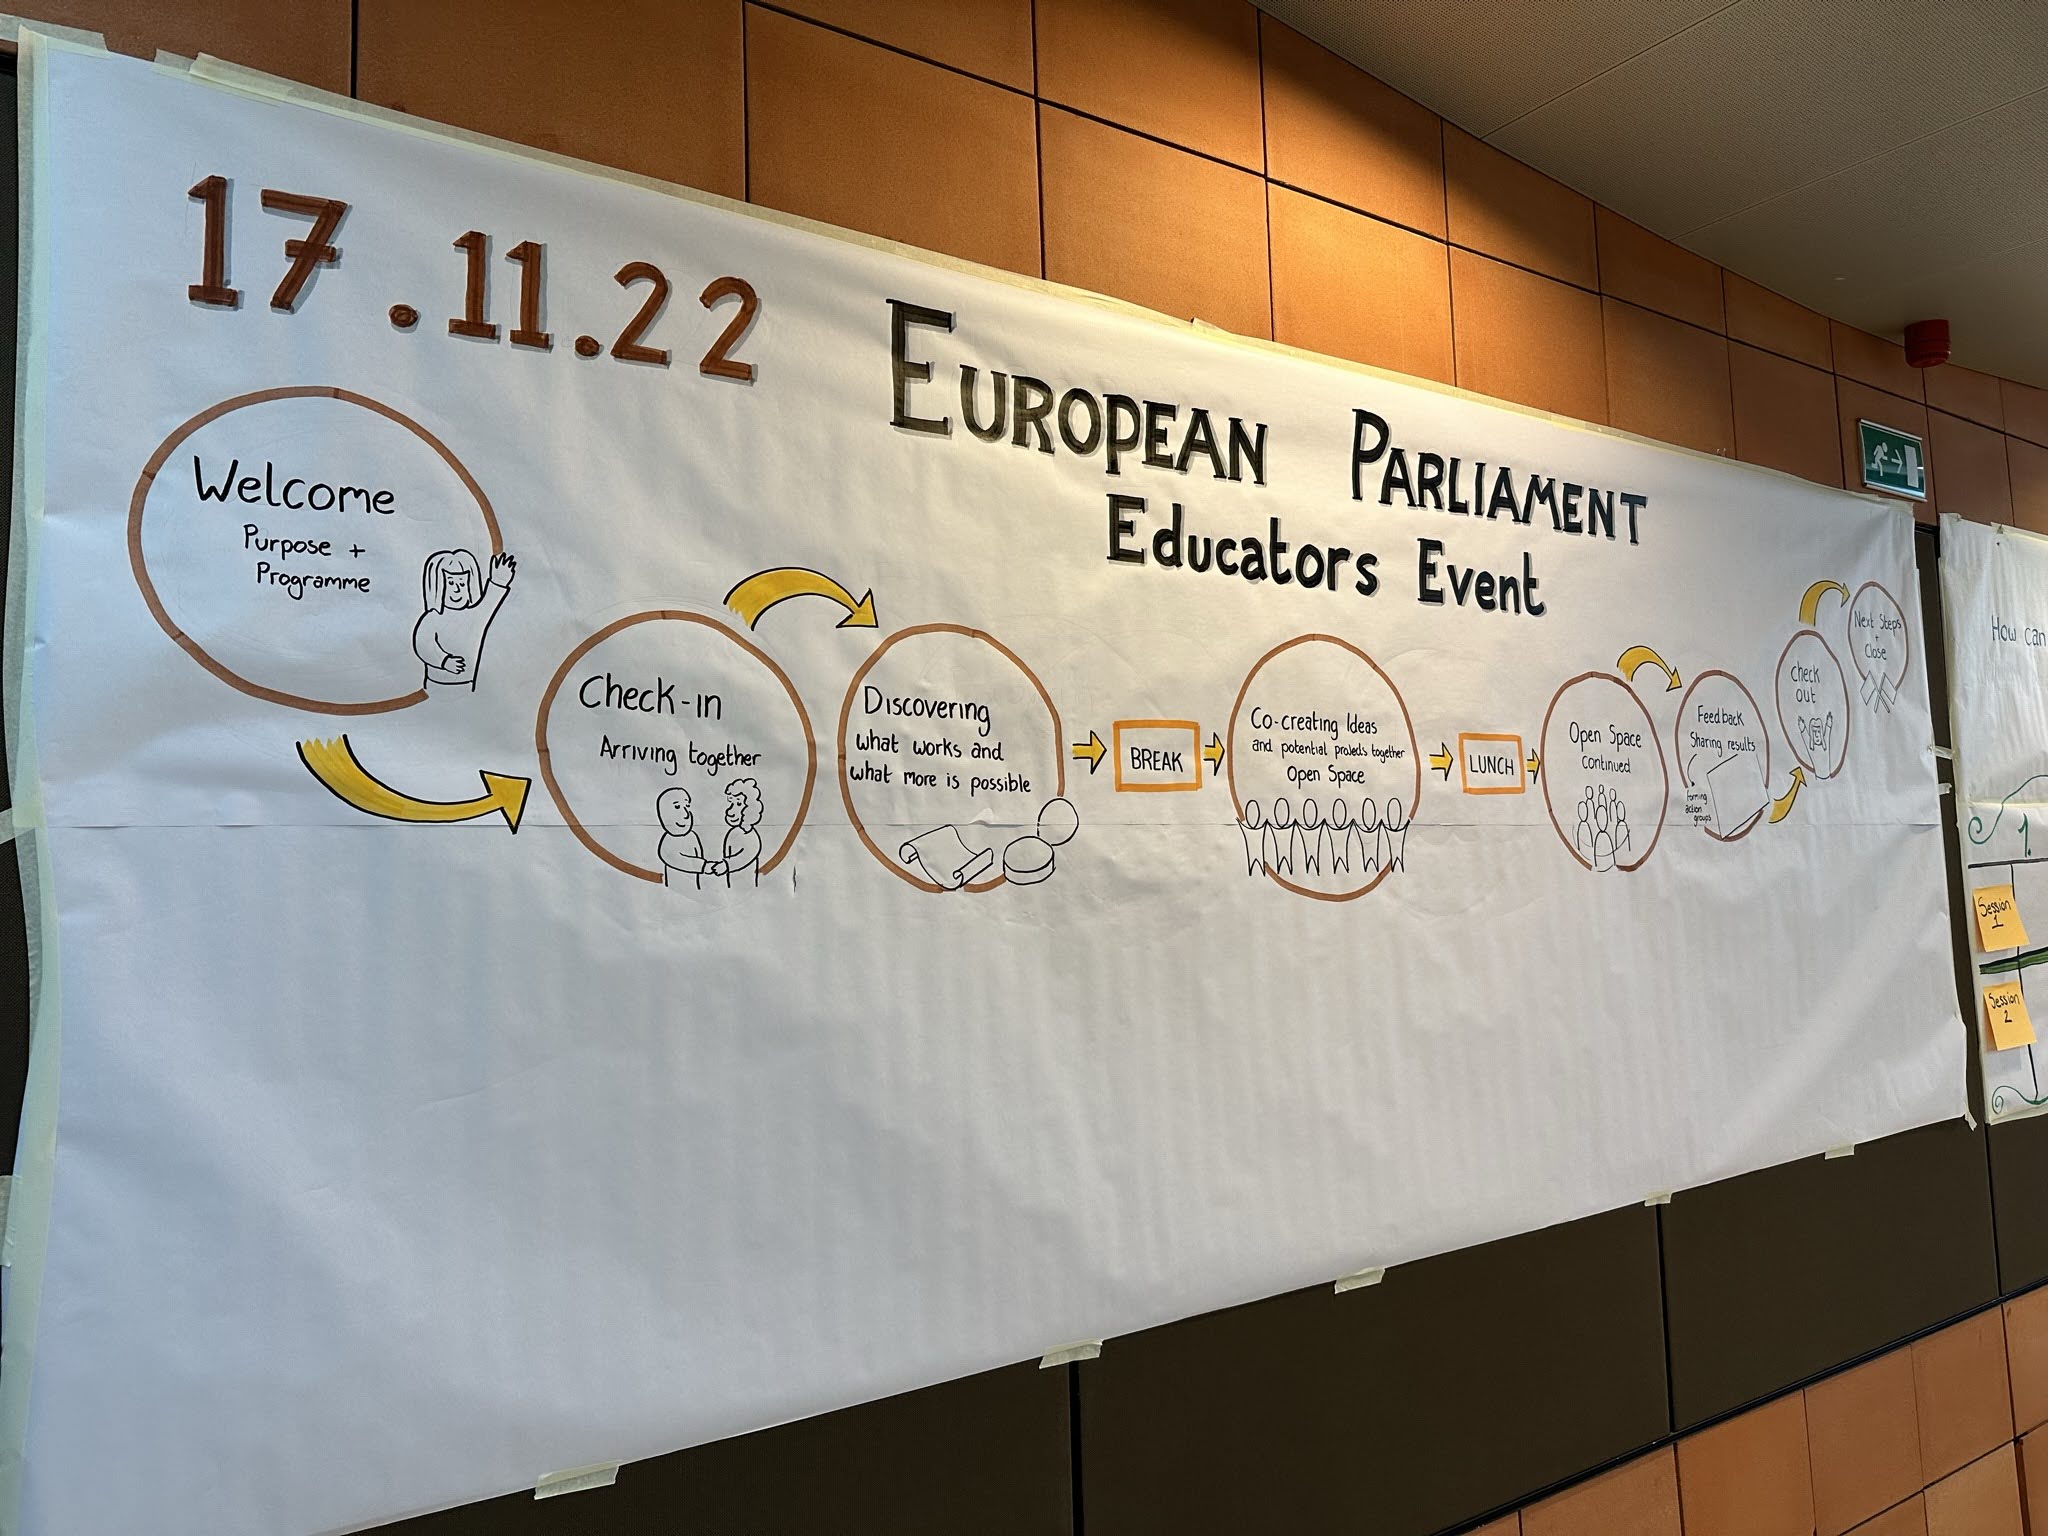 17.11.22
EUROPEAN PARLIAMENT
Educators Event
Welcome
Purpose +
Programme
Check-in
Arriving together
Discovering
what works and
what more is possible
BREAK
Co-creating Ideas
and potential projects together
Open Space
LUNCH
Open Space
continued
Feedback
Sharing results
forming
action
groups
Check
out
Next Steps
+
Close
How can
1.
Session
1
Session
2